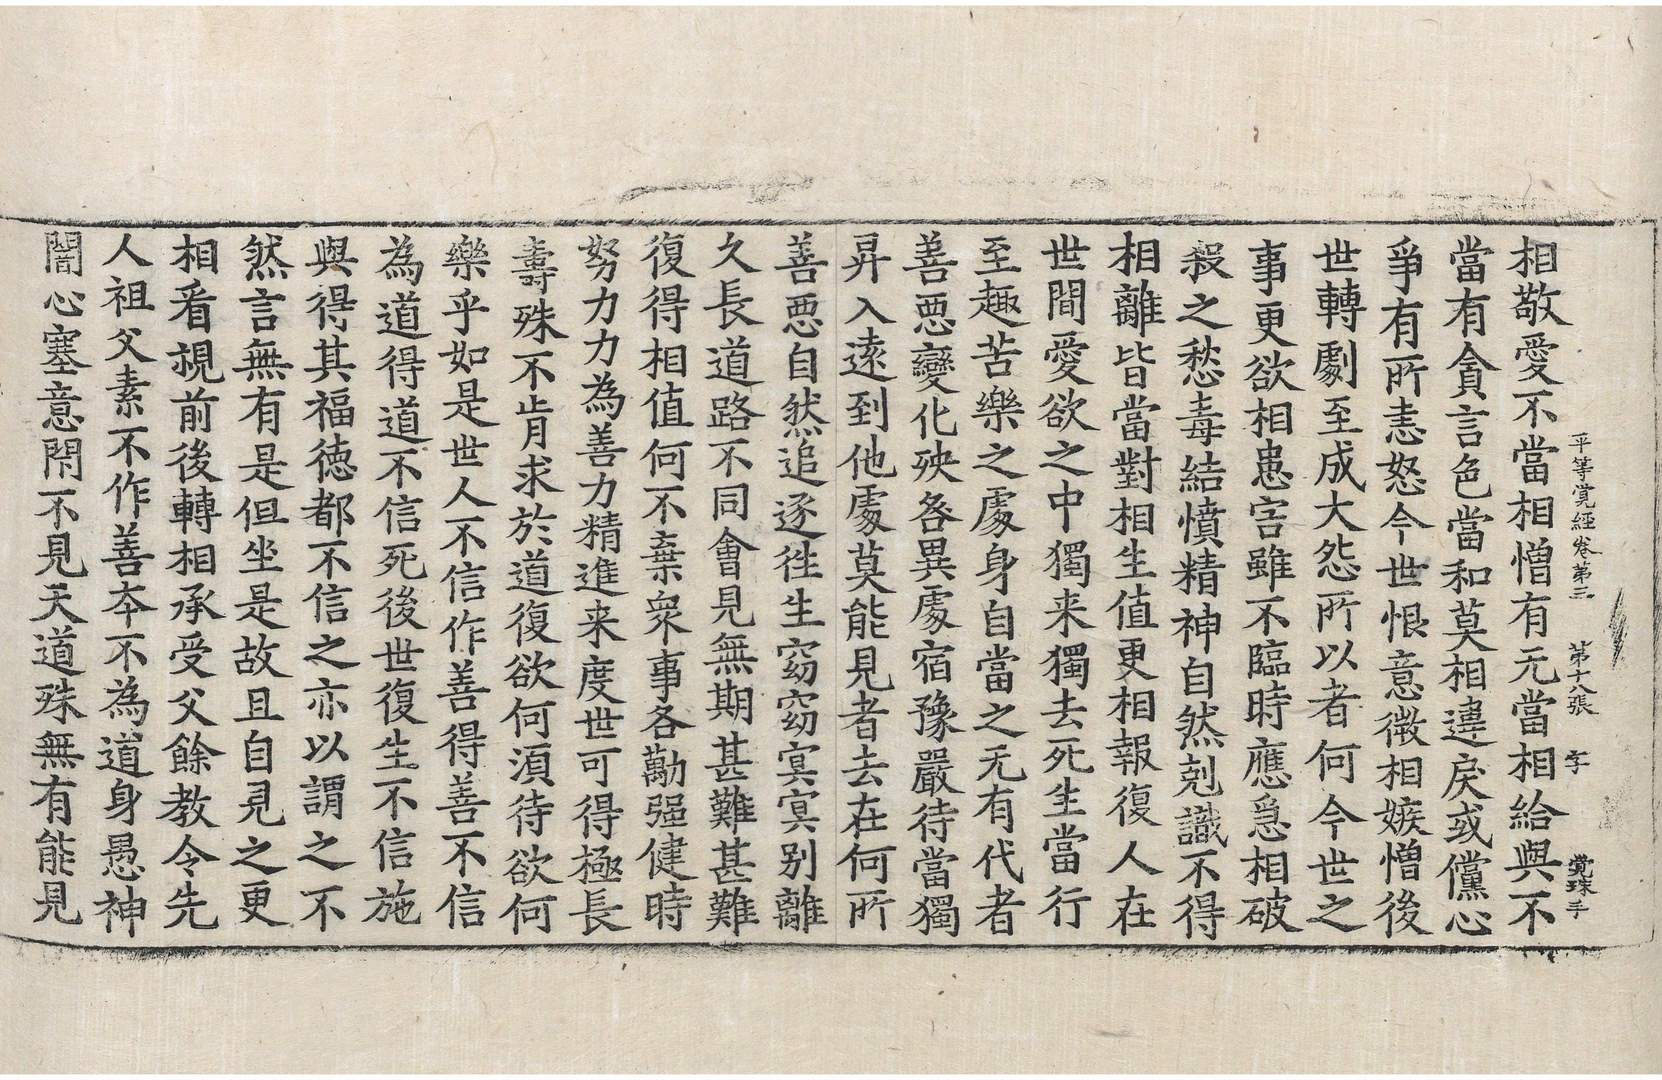 平等覺經卷第三　第十八張　字　覺珠手
相敬愛不當相憎有无當相給與不
當有貪言色當和莫相違戾或儻心
爭有所恚怒今世恨意微相嫉憎後
世轉劇至成大怨所以者何今世之
事更欲相患害雖不臨時應急相破
殺之愁毒結憤精神自然剋識不得
相離皆當對相生值更相報復人在
世間愛欲之中獨来獨去死生當行
至趣苦樂之處身自當之无有代者
善惡變化殃咎異處宿豫嚴待當獨
昇入遠到他處莫能見者去在何所
善惡自然追逐徃生窈窈冥冥別離
久長道路不同會見無期甚難甚難
復得相值何不棄衆事各勸强健時
努力力為善力精進来度世可得極長
壽殊不肯求於道復欲何湏待欲何
樂乎如是世人不信作善得善不信
為道得道不信死後世復生不信施
與得其福徳都不信之亦以謂之不
然言無有是但坐是故且自見之更
相看視前後轉相承受父餘教令先
人祖父素不作善本不為道身愚神
闇心塞意閇不見天道殊無有能見